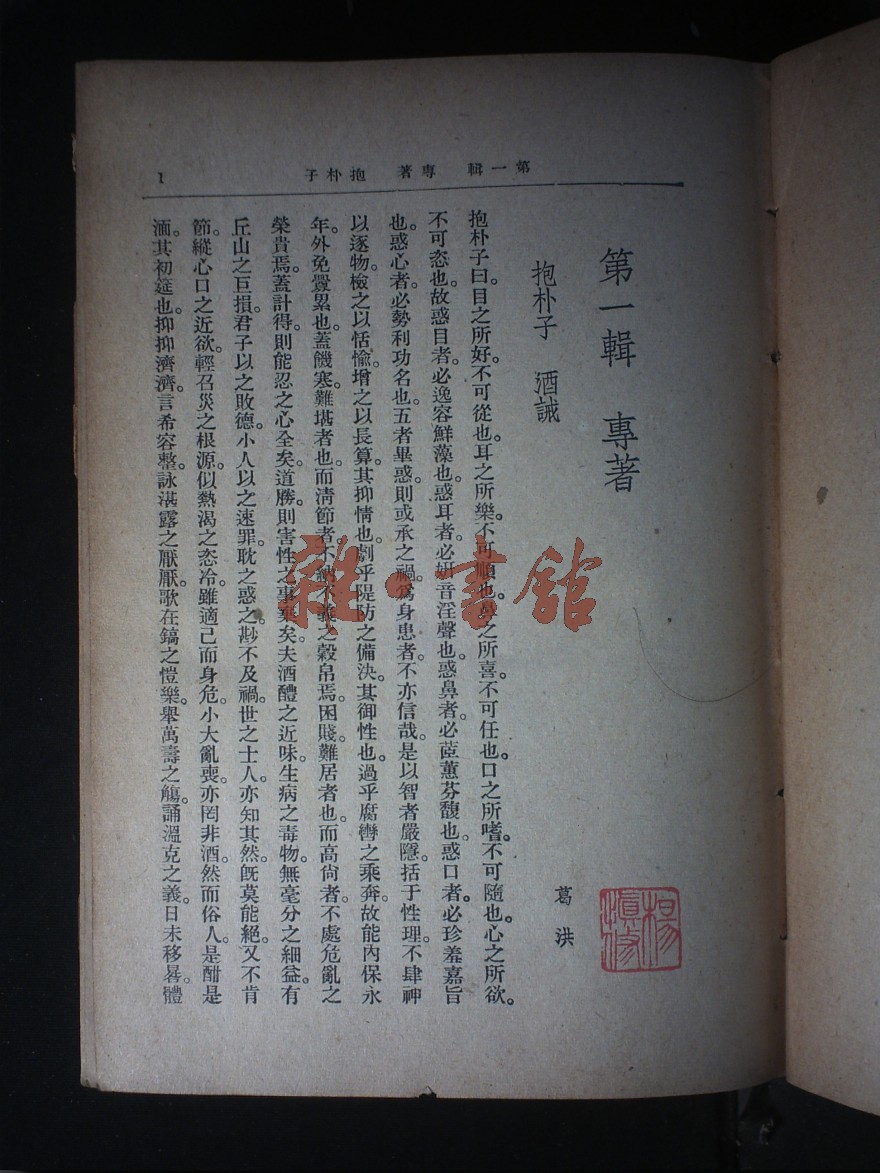 第一輯 專著 抱朴子
1
第一輯 專著
抱朴子 酒誡
葛洪
抱朴子曰。目之所好。不可從也。耳之所樂。不可順也。鼻之所喜。不可任也。口之所嗜。不可隨也。心之所欲。
不可恣也。故惑目者。必逸容鮮藻也。惑耳者。必妍音淫聲也。惑鼻者。必茝蕙芬馥也。惑口者。必珍羞嘉旨
也。惑心者。必勢利功名也。五者畢惑。則或承之禍。爲身患者。不亦信哉。是以智者嚴隱。括于性理。不肆神
以逐物。檢之以恬愉。增之以長算。其抑情也。劇乎隄防之備決。其御性也。過乎腐轡之乘奔。故能內保永
年。外免釁累也。蓋饑寒難堪者也。而清節者。不納不義之穀帛焉。困賤難居者也。而高尙者。不處危亂之
榮貴焉。蓋計得。則能忍之心全矣。道勝。則害性之事棄矣。夫酒醴之近味。生病之毒物。無毫分之細益。有
丘山之巨損。君子以之敗德。小人以之速罪。耽之惑之。尠不及禍。世之士人。亦知其然。旣莫能絕。又不肯
節。縱心口之近欲。輕召災之根源。似熱渴之恣冷。雖適己而身危。小大亂喪。亦罔非酒。然而俗人。是酣是
湎。其初筵也。抑抑濟濟。言希容整。詠湛露之厭厭。歌在鎬之愷樂。舉萬壽之觴。誦溫克之義。日未移晷。體
雜·書館
楊慎修